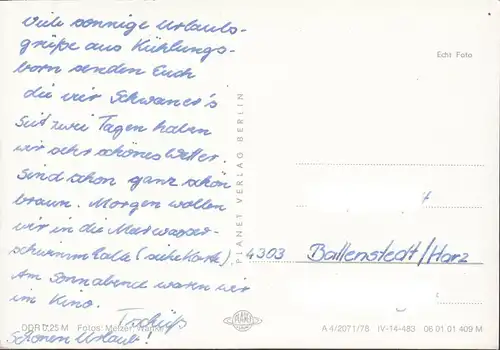 Viele sonnige Urlaubs-
grüße aus Kühlungs-
born senden Euch
die vier Schwaner's
Seit zwei Tagen haben
wir sehr schönes Wetter.
Sind schon ganz schön
braun. Morgen wollen
wir in die Meerwasser-
schwimmhalle (siehe Karte)
Am Sonnabend waren wir
im Kino.
Tschüß
Schönen Urlaub!
Echt Foto
PLANET VERLAG BERLIN
4303 Ballenstedt/Harz
DDR 0,25 M Fotos: Melzer
PLANET
A 4/2071/78 IV-14-483 06 01 01 409 M